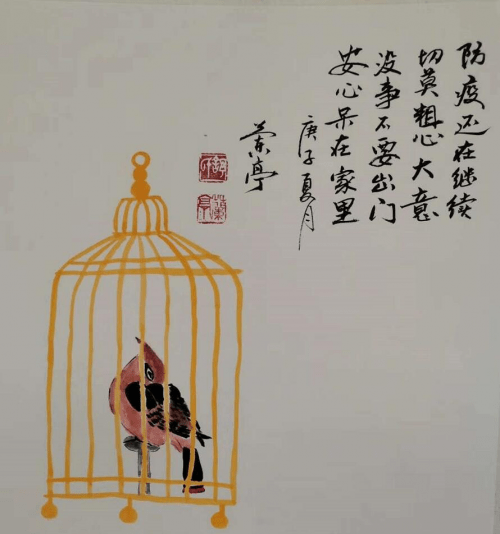 防疫还在继续
切莫粗心大意
没事不要出门
安心呆在家里
庚子夏月
兰亭